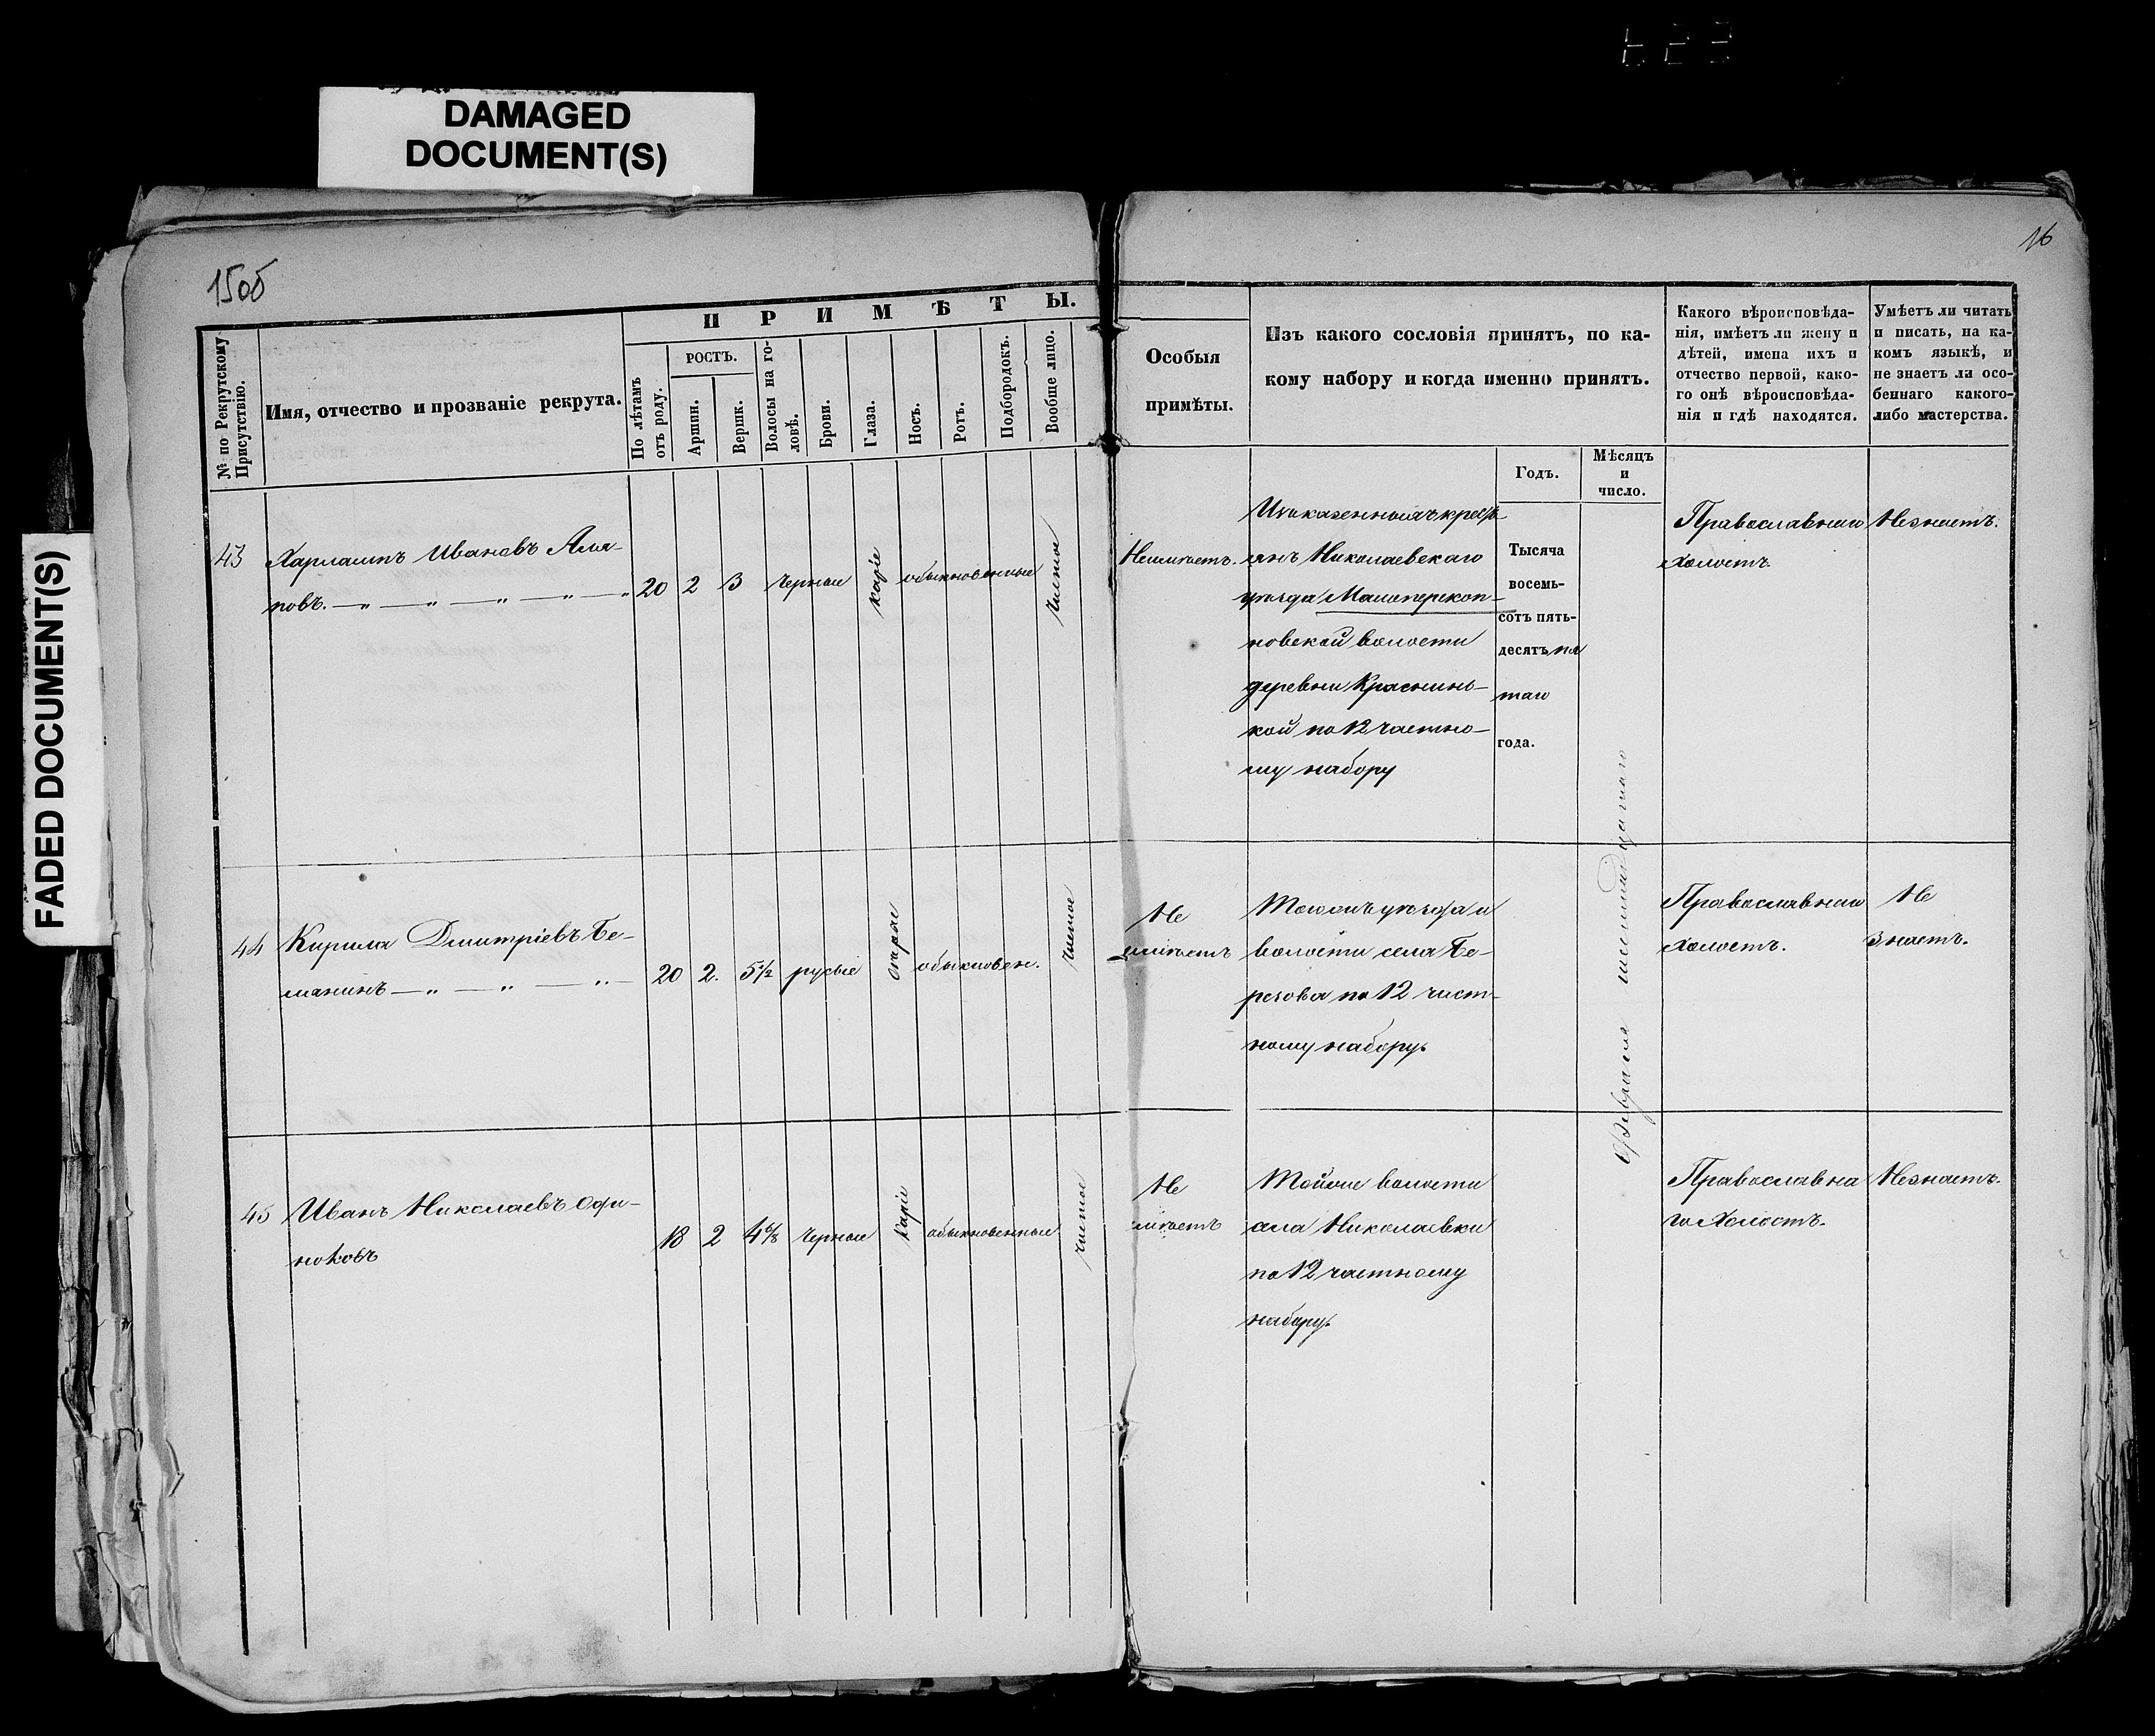 DAMAGED
DOCUMENT(S)
FADED DOCUMENT(S)
15об
16
ПРИМѢТЫ.
№ по Рекрутскому Присутствію.
Имя, отчество и прозваніе рекрута.
По лѣтамъ отъ роду.
РОСТЪ.
Аршин.
Вершк.
Волосы на головѣ.
Брови.
Глаза.
Носъ.
Ротъ.
Подбородокъ.
Вообще лицо.
Особыя
примѣты.
Изъ какого сословія принятъ, по ка-
кому набору и когда именно принятъ.
Годъ.
Мѣсяцъ
и
число.
Какого вѣроисповѣда-
нія, имѣетъ ли жену и
дѣтей, имена ихъ и
отчество первой, како-
го онѣ вѣроисповѣда-
нія и гдѣ находятся.
Умѣетъ ли читать
и писать, на ка-
комъ языкѣ, и
не знаетъ ли осо-
беннаго какого-
либо мастерства.
43
Харлампъ Ивановъ Аля-
повъ. — „ — „ — „ — „ — „
20 2 3 Черные карие обыкновенные Чистое
Неимѣетъ.
Изъ казенныхъ крестъ-
янъ Николаевскаго
уѣзда Малоперекоп-
новской волости
деревни Краснинь-
кой по 12 частно-
му набору
Тысяча
восемь-
сотъ пять-
десятъ пя
таго
года.
Февраля шестнадцатаго
Православнаго
холостъ
Незнаетъ.
44
Кирила Дмитріевъ Бе-
манинъ — „ — „ — „ —
20 2. 5½ русые серые обыкновен. Чистое
Не
имѣетъ
Тогожъ уѣзда и
волости села Бе-
резова по 12 част-
ному набору.
Православнаго
холостъ.
Не
Знаетъ.
45
Иванъ Николаевъ Офи-
ноковъ
18 2 4⁶/₈ Черные Карие обыкновенные Чистое
Не
имѣетъ
Тойже волости
села Николаевки
по 12 частному
набору.
Православна
го Холостъ.
Незнаетъ.